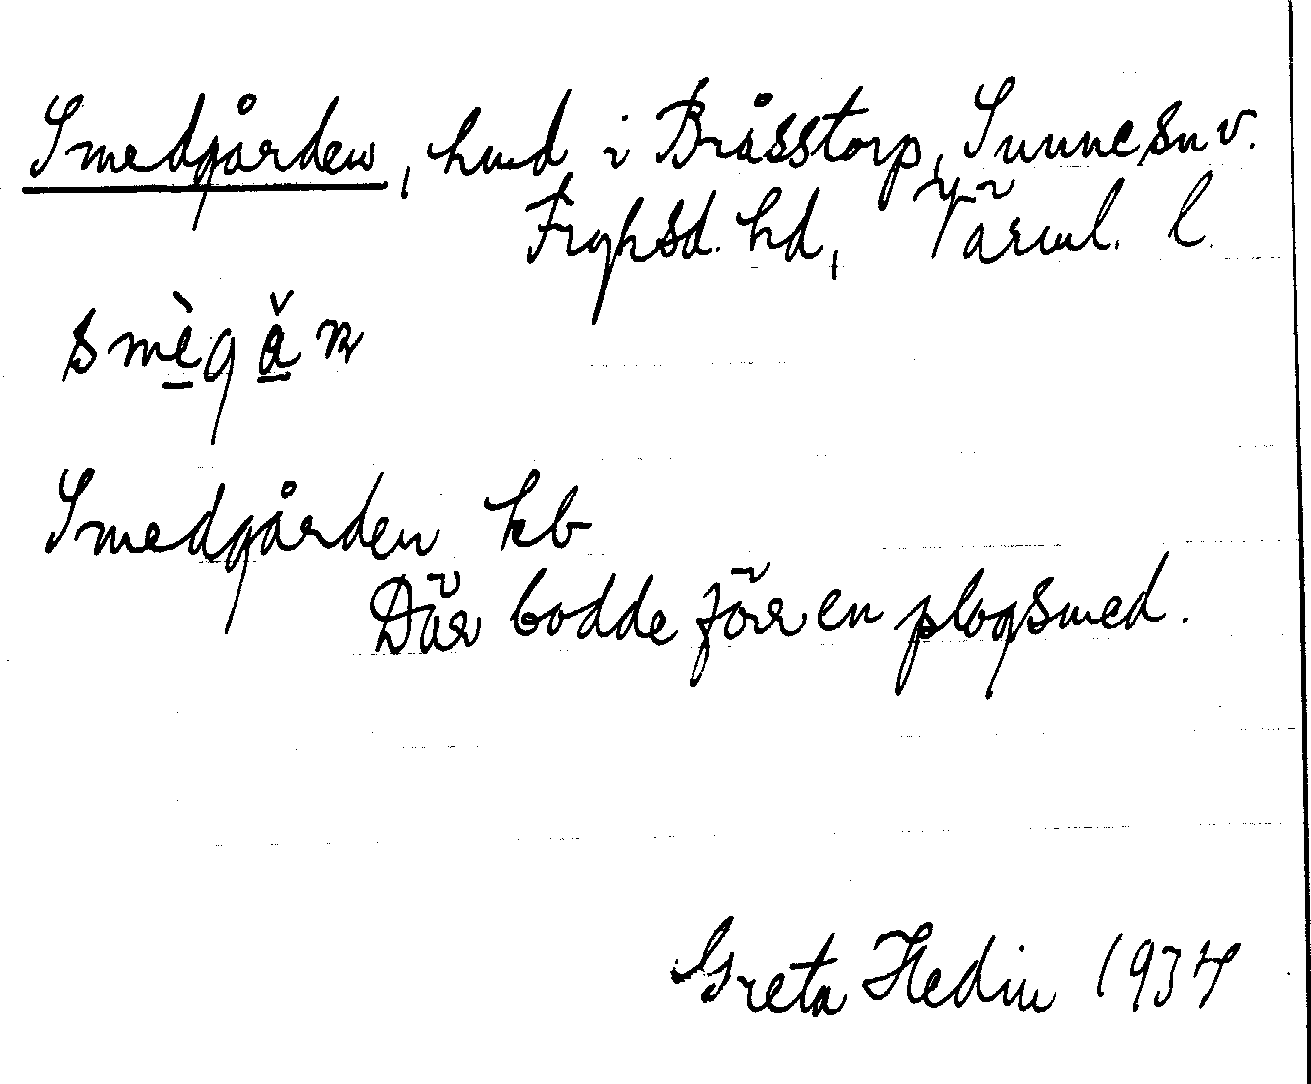 Smedgården, hmd i Bråsstorp, Sunne sn v.
Fryksd. hd, Värml. l.
smègå̌ɳ
Smedgården kb
Där bodde förr en plogsmed.
Greta Hedin 1934